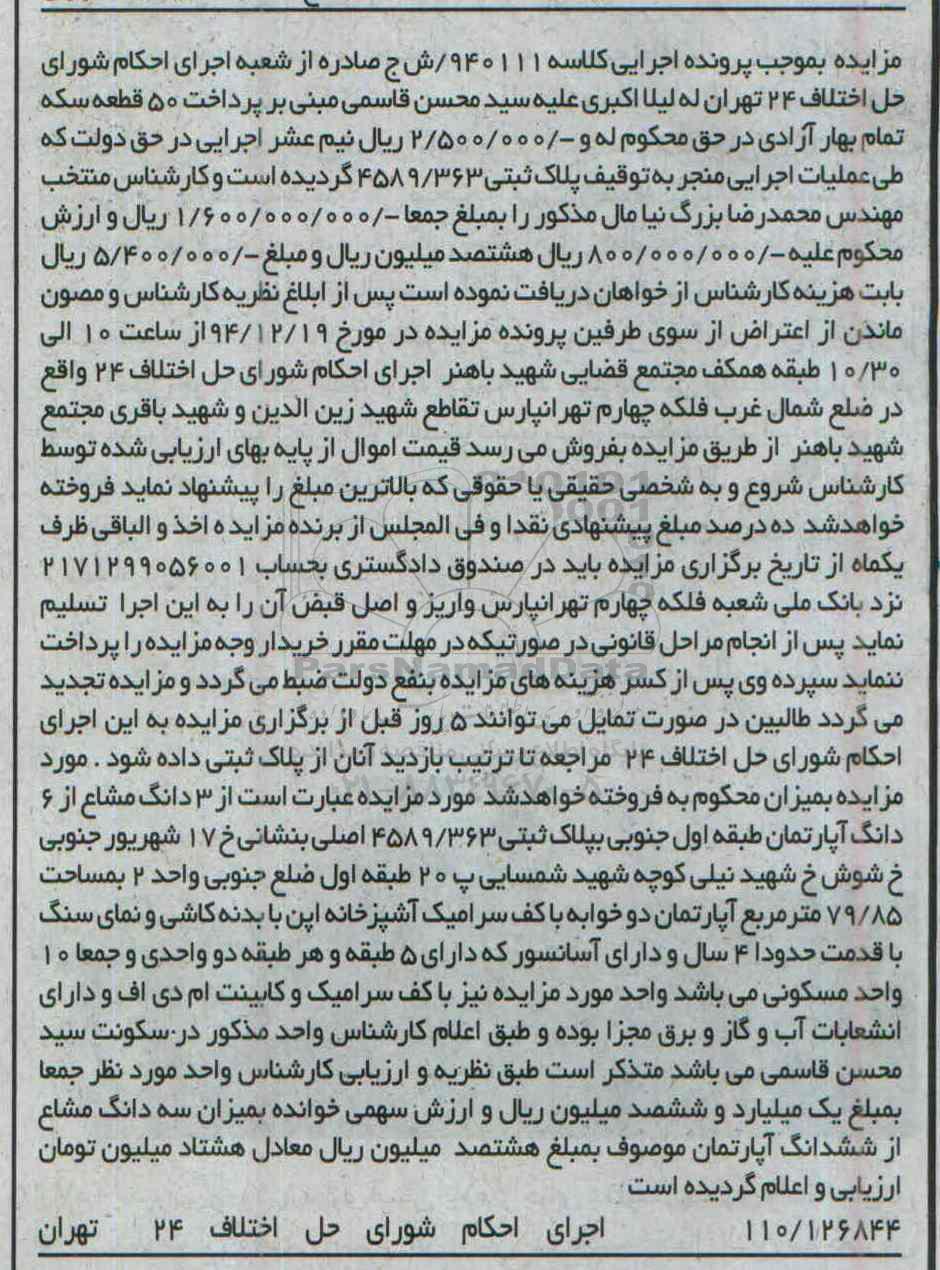 مزایده بموجب پرونده اجرایی کلاسه ۹۴۰۱۱۱/ش ج صادره از شعبه اجرای احکام شورای
حل اختلاف ۲۴ تهران له لیلا اکبری علیه سید محسن قاسمی مبنی بر پرداخت ۵۰ قطعه سکه
تمام بهار آزادی در حق محکوم له و -/۲/۵۰۰/۰۰۰ ریال نیم عشر اجرایی در حق دولت که
طی عملیات اجرایی منجر به توقیف پلاک ثبتی ۴۵۸۹/۳۶۳ گردیده است و کارشناس منتخب
مهندس محمدرضا بزرگ نیا مال مذکور را بمبلغ جمعا -/۱/۶۰۰/۰۰۰/۰۰۰ ریال و ارزش
محکوم علیه -/۸۰۰/۰۰۰/۰۰۰ ریال هشتصد میلیون ریال و مبلغ -/۵/۴۰۰/۰۰۰ ریال
بابت هزینه کارشناس از خواهان دریافت نموده است پس از ابلاغ نظریه کارشناس و مصون
ماندن از اعتراض از سوی طرفین پرونده مزایده در مورخ ۹۴/۱۲/۱۹ از ساعت ۱۰ الی
۱۰/۳۰ طبقه همکف مجتمع قضایی شهید باهنر اجرای احکام شورای حل اختلاف ۲۴ واقع
در ضلع شمال غرب فلکه چهارم تهرانپارس تقاطع شهید زین الدین و شهید باقری مجتمع
شهید باهنر از طریق مزایده بفروش می رسد قیمت اموال از پایه بهای ارزیابی شده توسط
کارشناس شروع و به شخصی حقیقی یا حقوقی که بالاترین مبلغ را پیشنهاد نماید فروخته
خواهدشد ده درصد مبلغ پیشنهادی نقدا و فی المجلس از برنده مزایده اخذ و الباقی ظرف
یکماه از تاریخ برگزاری مزایده باید در صندوق دادگستری بحساب ۲۱۷۱۲۹۹۰۵۶۰۰۱
نزد بانک ملی شعبه فلکه چهارم تهرانپارس واریز و اصل قبض آن را به این اجرا تسلیم
نماید پس از انجام مراحل قانونی در صورتیکه در مهلت مقرر خریدار وجه مزایده را پرداخت
ننماید سپرده وی پس از کسر هزینه های مزایده بنفع دولت ضبط می گردد و مزایده تجدید
می گردد طالبین در صورت تمایل می توانند ۵ روز قبل از برگزاری مزایده به این اجرای
احکام شورای حل اختلاف ۲۴ مراجعه تا ترتیب بازدید آنان از پلاک ثبتی داده شود . مورد
مزایده بمیزان محکوم به فروخته خواهدشد مورد مزایده عبارت است از ۳ دانگ مشاع از ۶
دانگ آپارتمان طبقه اول جنوبی بپلاک ثبتی ۴۵۸۹/۳۶۳ اصلی بنشانی خ ۱۷ شهریور جنوبی
خ شوش خ شهید نیلی کوچه شهید شمسایی پ ۲۰ طبقه اول ضلع جنوبی واحد ۲ بمساحت
۷۹/۸۵ متر مربع آپارتمان دو خوابه با کف سرامیک آشپزخانه اپن با بدنه کاشی و نمای سنگ
با قدمت حدودا ۴ سال و دارای آسانسور که دارای ۵ طبقه و هر طبقه دو واحدی و جمعا ۱۰
واحد مسکونی می باشد واحد مورد مزایده نیز با کف سرامیک و کابینت ام دی اف و دارای
انشعابات آب و گاز و برق مجزا بوده و طبق اعلام کارشناس واحد مذکور در سکونت سید
محسن قاسمی می باشد متذکر است طبق نظریه و ارزیابی کارشناس واحد مورد نظر جمعا
بمبلغ یک میلیارد و ششصد میلیون ریال و ارزش سهمی خوانده بمیزان سه دانگ مشاع
از ششدانگ آپارتمان موصوف بمبلغ هشتصد میلیون ریال معادل هشتاد میلیون تومان
ارزیابی و اعلام گردیده است
۱۱۰/۱۲۶۸۴۴ اجرای احکام شورای حل اختلاف ۲۴ تهران
ParsNamadData